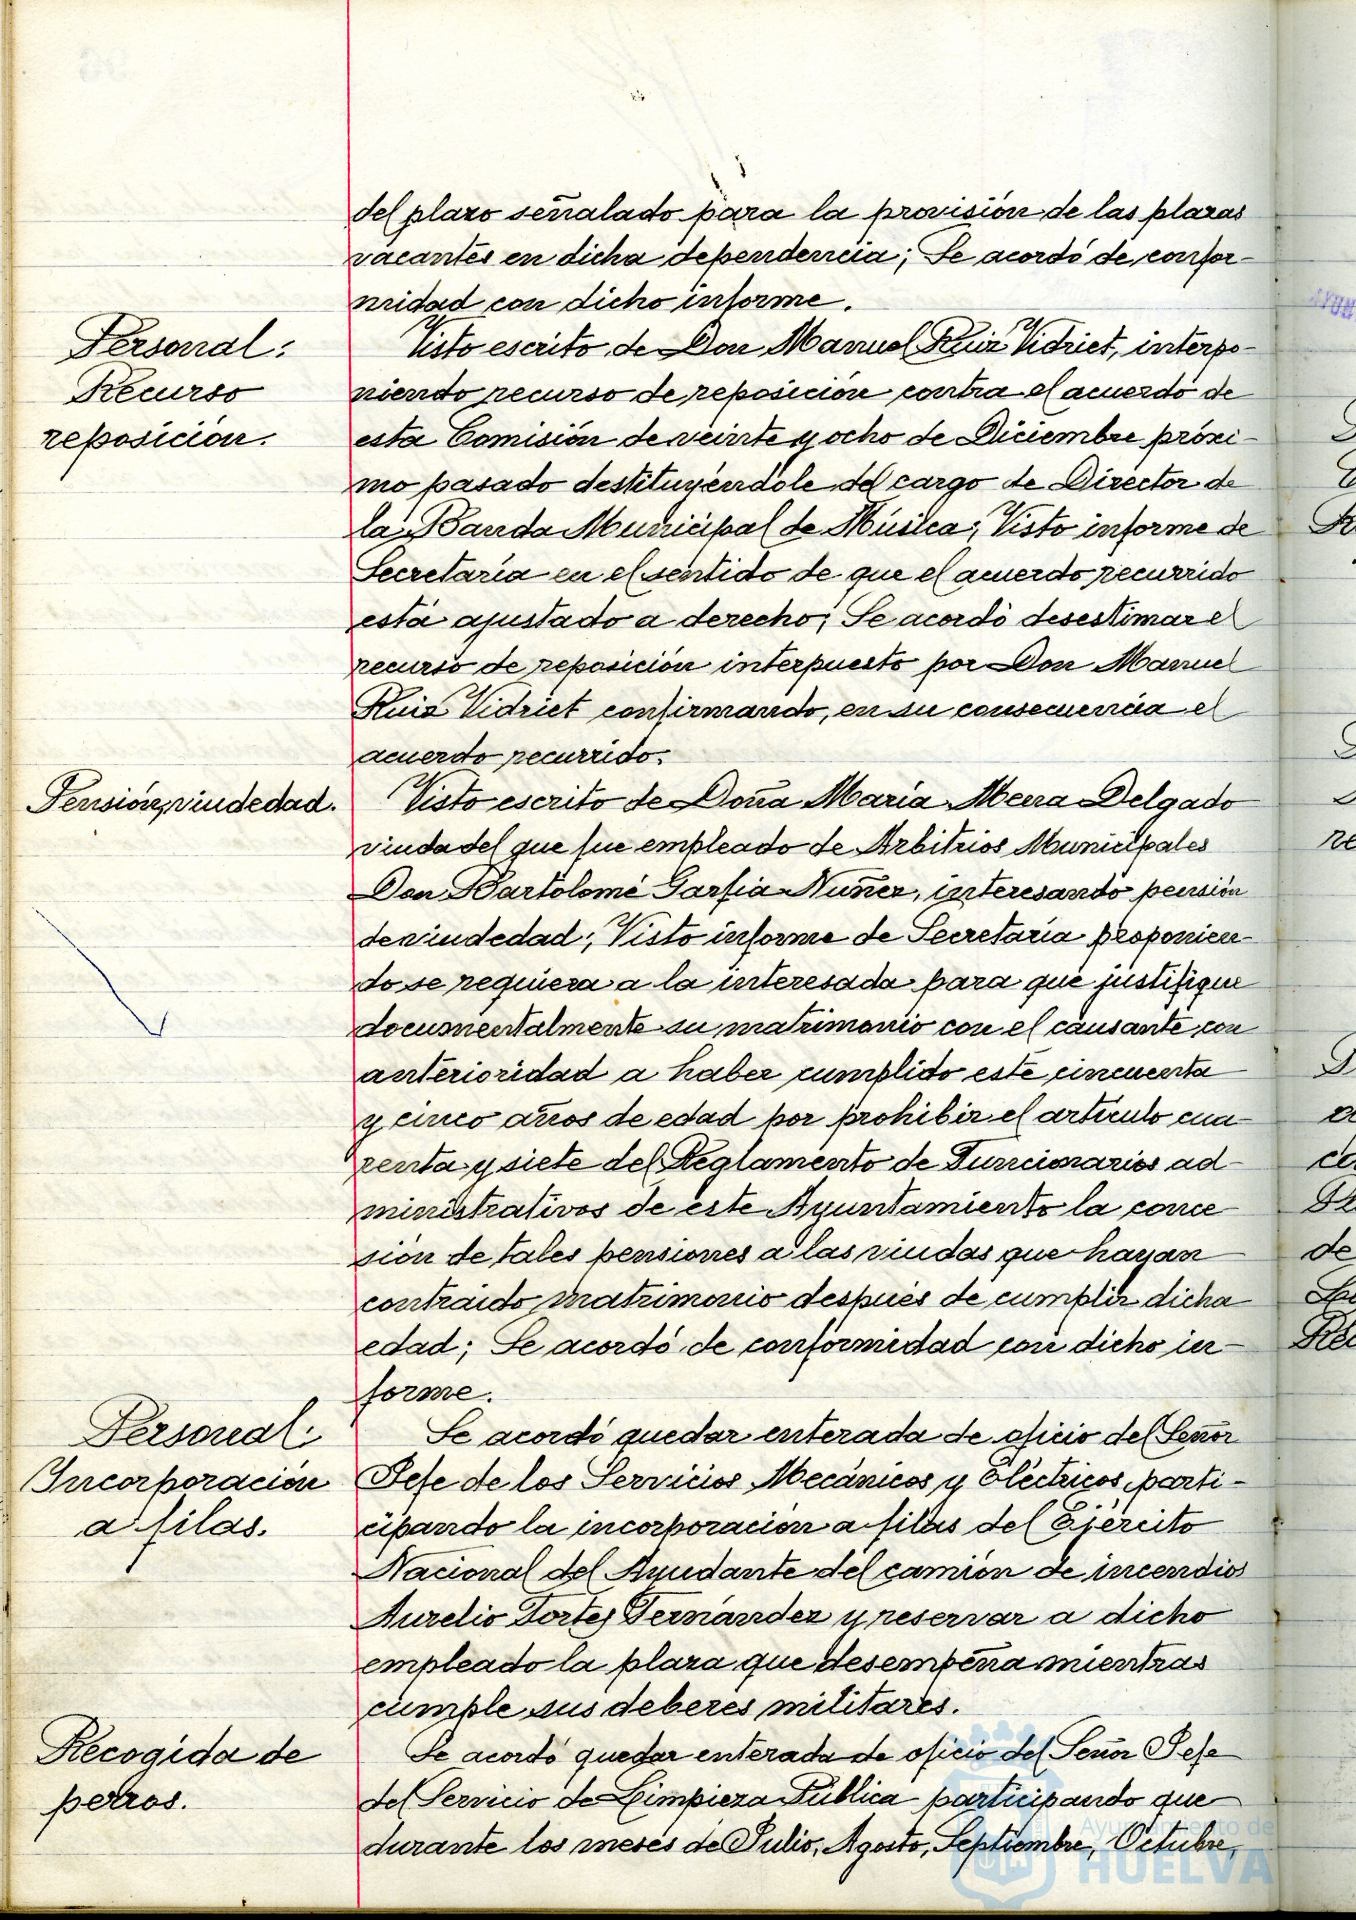 del plazo señalado para la provisión de las plazas
vacantes en dicha dependencia; Se acordó de confor-
midad con dicho informe.
Personal:
Recurso
reposición.
Visto escrito de Don Manuel Ruiz Vidriet, interpo-
niendo recurso de reposición contra el acuerdo de
esta Comisión de veinte y ocho de Diciembre próxi-
mo pasado destituyéndole del cargo de Director de
la Banda Municipal de Música; Visto informe de
Secretaría en el sentido de que el acuerdo recurrido
está ajustado a derecho; Se acordó desestimar el
recurso de reposición interpuesto por Don Manuel
Ruiz Vidriet confirmando, en su consecuencia el
acuerdo recurrido.
Pensión, viudedad.
Visto escrito de Doña María Meera Delgado
viuda del que fue empleado de Arbitrios Municipales
Don Bartolomé Garfia Nuñez, interesando pensión
de viudedad; Visto informe de Secretaría proponien-
do se requiera a la interesada para que justifique
documentalmente su matrimonio con el causante con
anterioridad a haber cumplido este cincuenta
y cinco años de edad por prohibir el artículo cua-
renta y siete del Reglamento de Funcionarios ad-
ministrativos de este Ayuntamiento la conce-
sión de tales pensiones a las viudas que hayan
contraido matrimonio después de cumplir dicha
edad; Se acordó de conformidad con dicho in-
forme.
Personal:
Incorporación
a filas.
Se acordó quedar enterada de oficio del Señor
Jefe de los Servicios Mecánicos y Eléctricos parti-
cipando la incorporación a filas del Ejército
Nacional del Ayudante del camión de incendios
Aurelio Fortes Fernández y reservar a dicho
empleado la plaza que desempeña mientras
cumple sus deberes militares.
Recogida de
perros.
Se acordó quedar enterada de oficio del Señor Jefe
del Servicio de Limpieza Pública participando que
durante los meses de Julio, Agosto, Septiembre, Octubre,
Ayuntamiento de
HUELVA